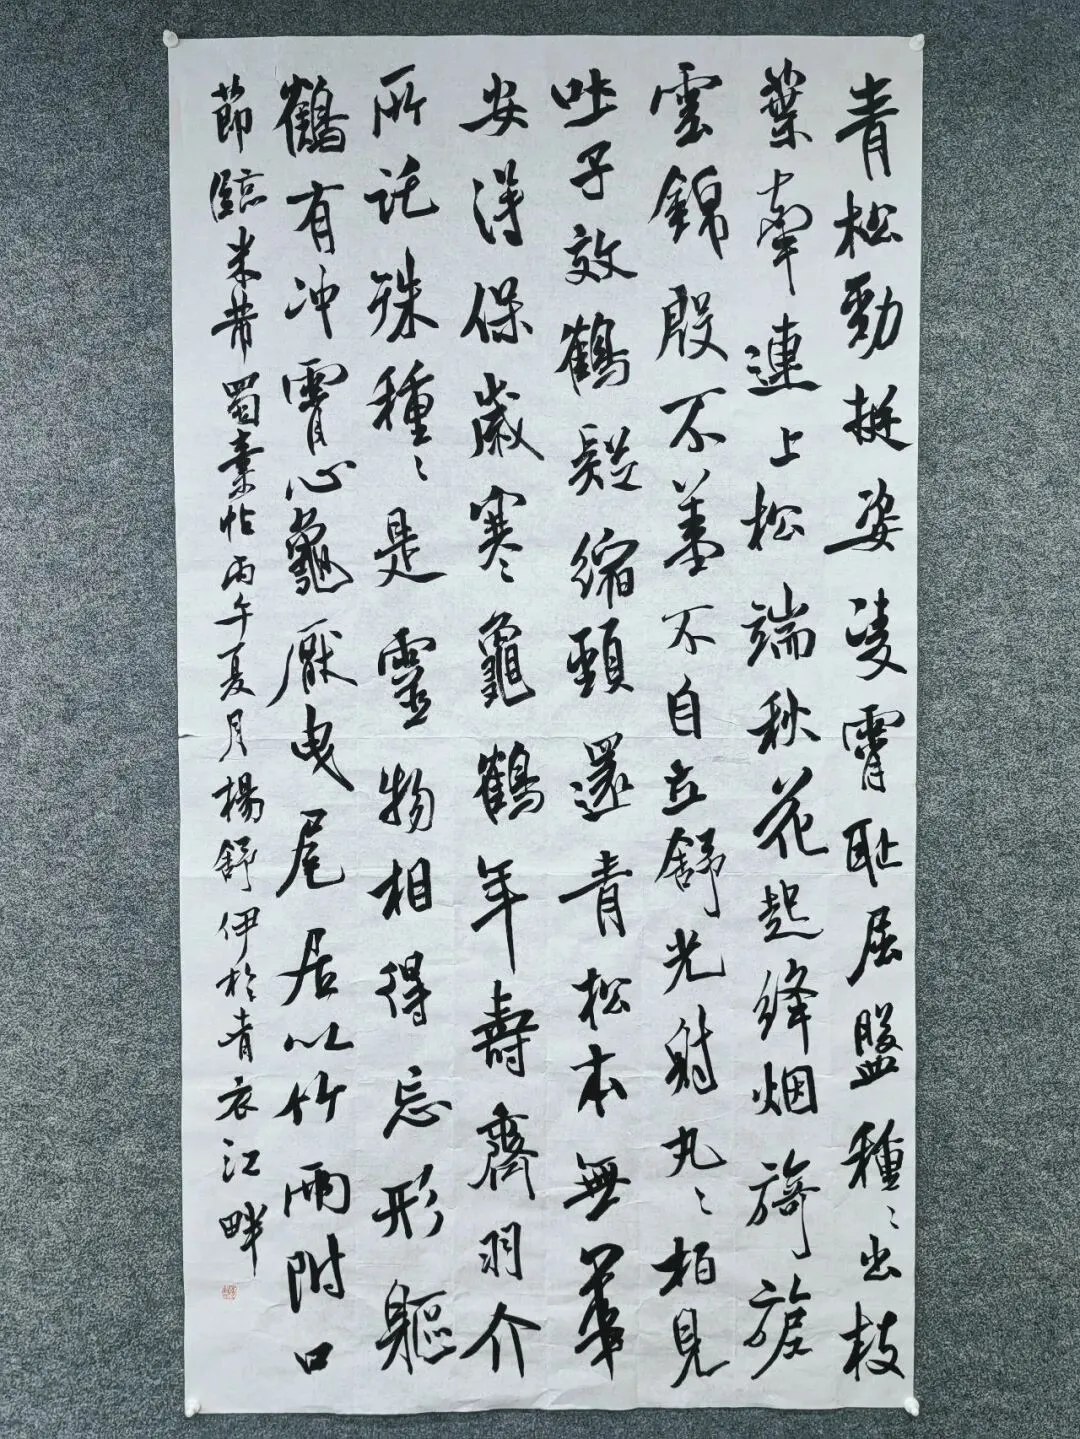 青松勁挺姿凌霄耻屈盤種〻出枝
葉牽連上松端秋花起絳烟旖旎
雲錦殷不羞不自立舒光射丸〻柏見
吐子效鶴疑縮頸還青松本無華
安得保歲寒龜鶴年壽齊羽介
所託殊種〻是靈物相得忘形軀
鶴有冲霄心龜厭曳尾居以竹兩附口
節臨米芾蜀素帖丙午夏月楊舒伊於青衣江畔